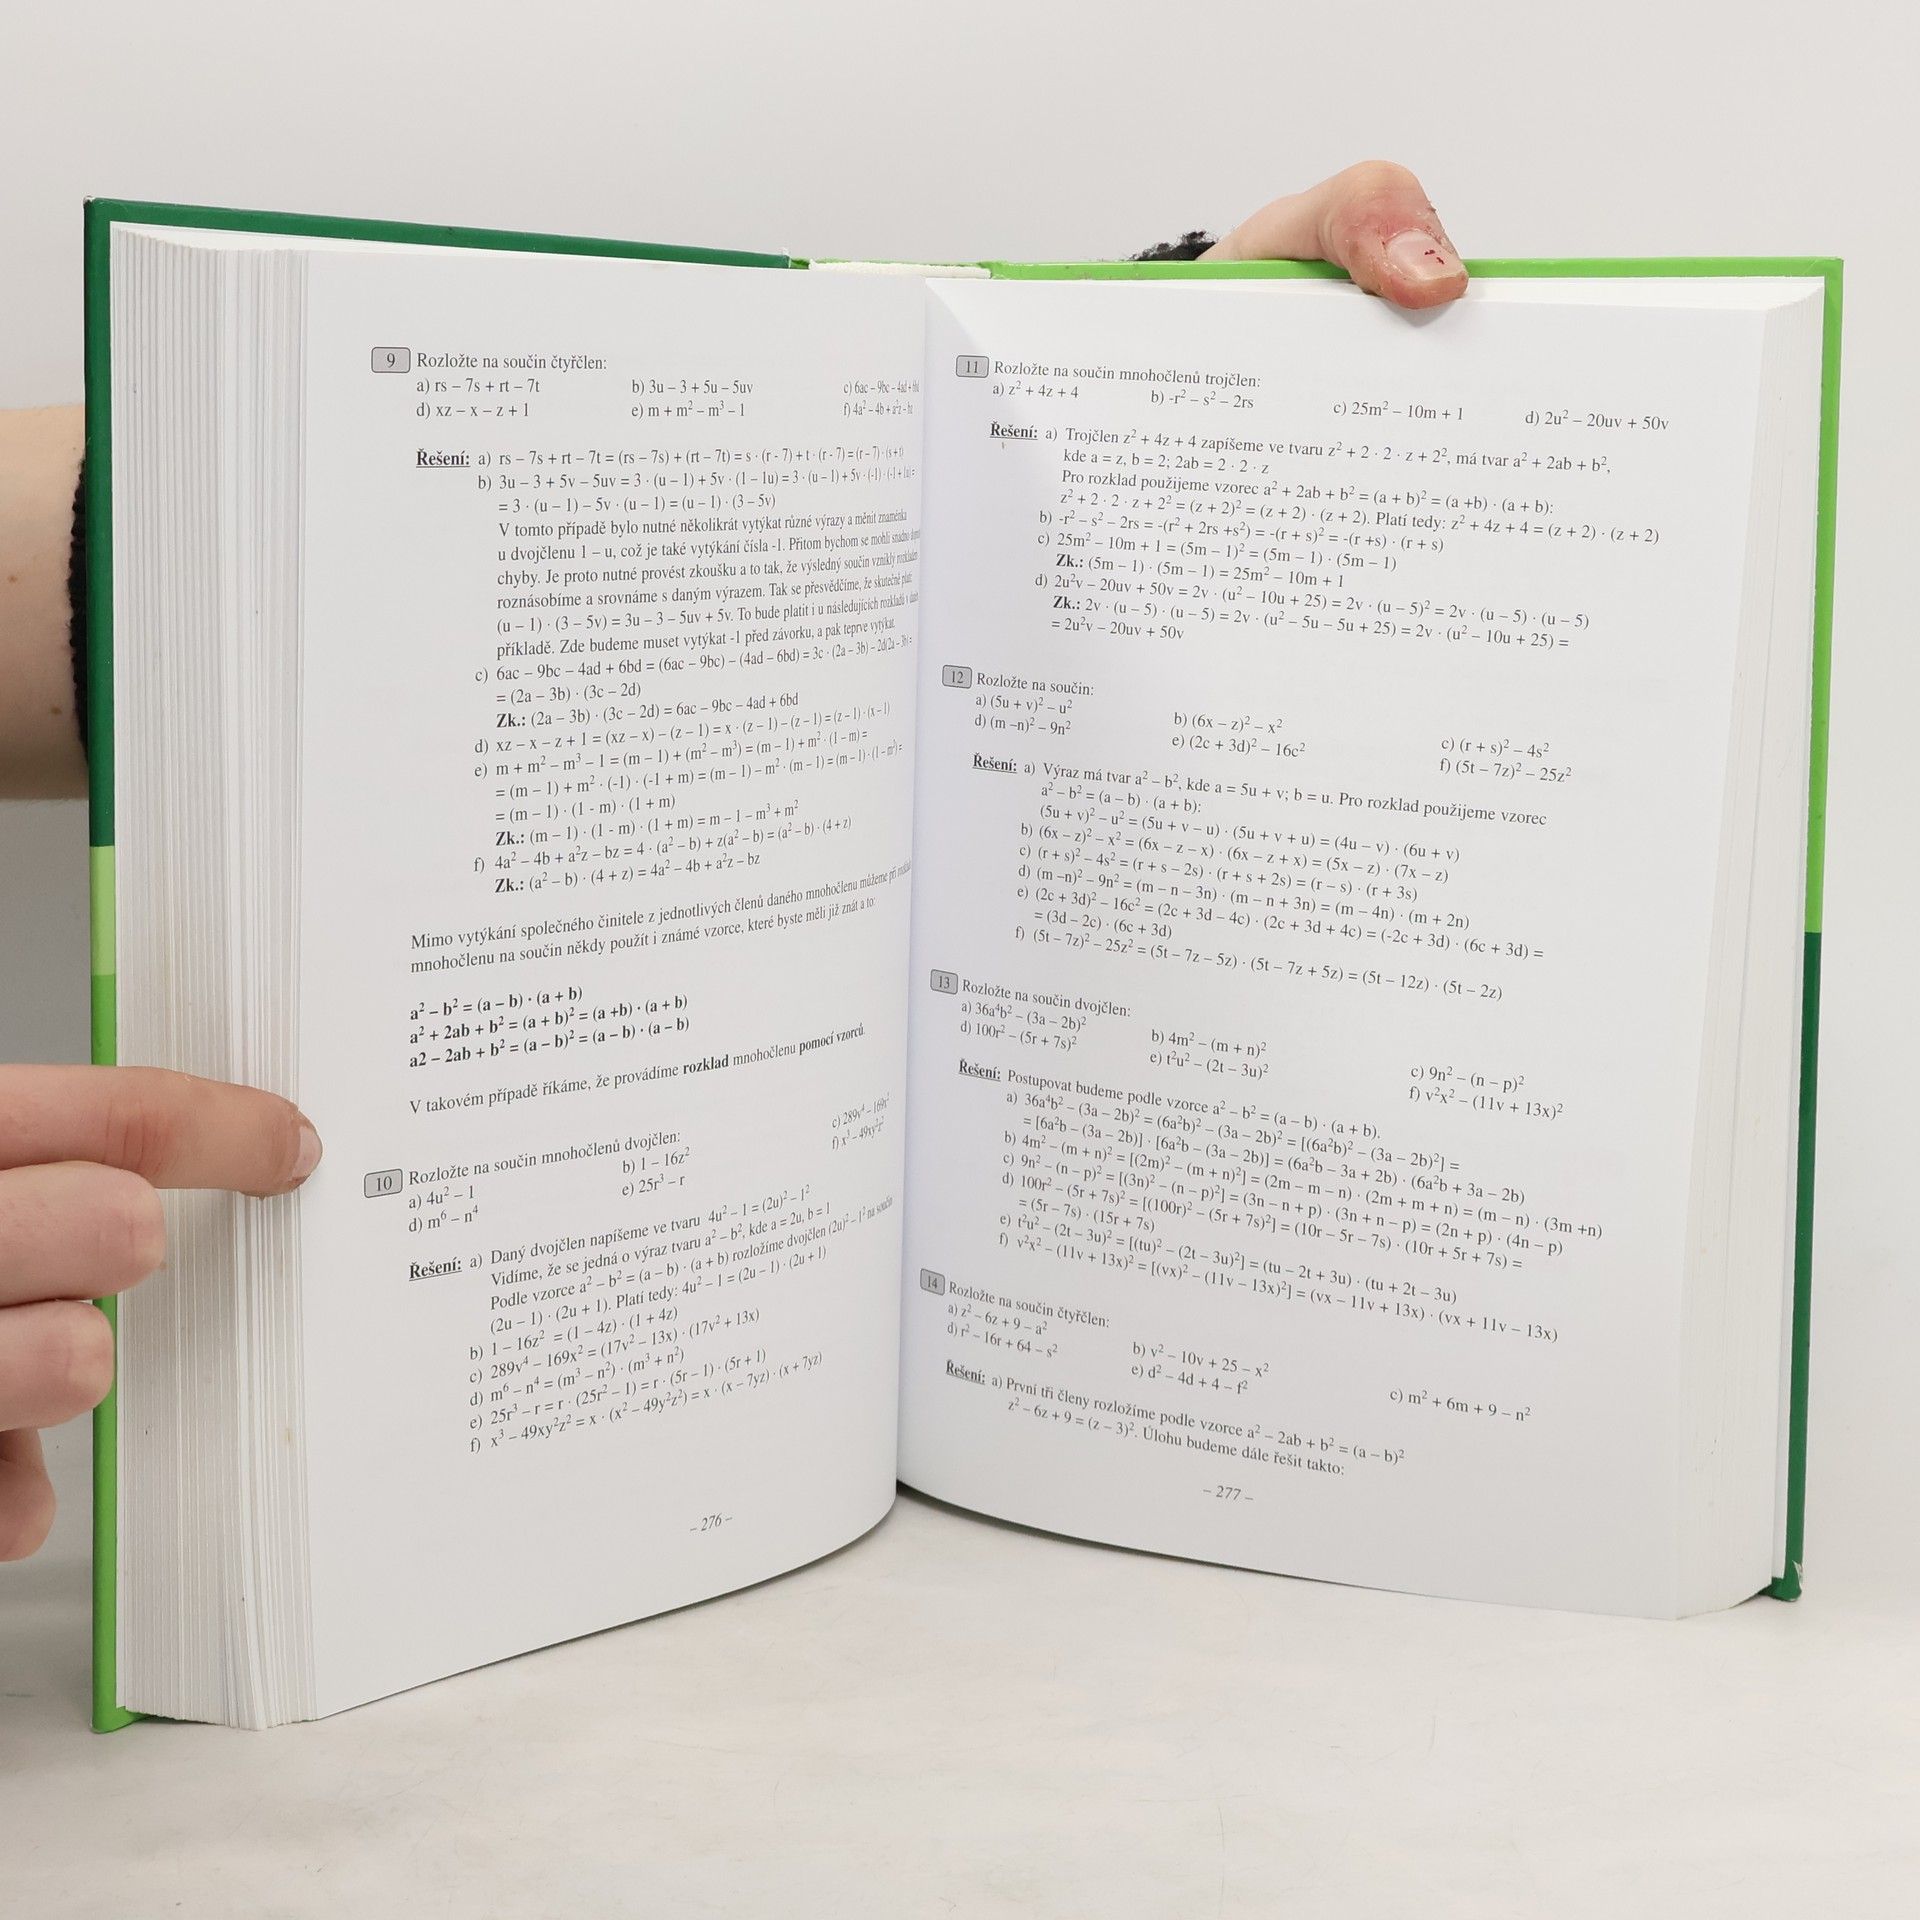 9 Rozložte na součin čtyřčlen:
a) rs – 7s + rt – 7t b) 3u – 3 + 5u – 5uv c) 6ac – 9bc – 4ad + 6bd
d) xz – x – z + 1 e) m + m² – m³ – 1 f) 4a² – 4b + a²z – bz
Řešení: a) rs – 7s + rt – 7t = (rs – 7s) + (rt – 7t) = s · (r - 7) + t · (r - 7) = (r – 7) · (s + t)
b) 3u – 3 + 5v – 5uv = 3 · (u – 1) + 5v · (1 – 1u) = 3 · (u – 1) + 5v · (-1) · (-1 + 1u) =
= 3 · (u – 1) – 5v · (u – 1) = (u – 1) · (3 – 5v)
V tomto případě bylo nutné několikrát vytýkat různé výrazy a měnit znaménka
u dvojčlenu 1 – u, což je také vytýkání čísla -1. Přitom bychom se mohli snadno
chyby. Je proto nutné provést zkoušku a to tak, že výsledný součin vzniklý rozkladem
roznásobíme a srovnáme s daným výrazem. Tak se přesvědčíme, že skutečně platí:
(u – 1) · (3 – 5v) = 3u – 3 – 5uv + 5v. To bude platit i u následujících rozkladů v
příkladě. Zde budeme muset vytýkat -1 před závorku, a pak teprve vytýkat.
c) 6ac – 9bc – 4ad + 6bd = (6ac – 9bc) – (4ad – 6bd) = 3c · (2a – 3b) – 2d(2a – 3b) =
= (2a – 3b) · (3c – 2d)
Zk.: (2a – 3b) · (3c – 2d) = 6ac – 9bc – 4ad + 6bd
d) xz – x – z + 1 = (xz – x) – (z – 1) = x · (z – 1) – (z – 1) = (z – 1) · (x – 1)
e) m + m² – m³ – 1 = (m – 1) + (m² – m³) = (m – 1) + m² · (1 – m) =
= (m – 1) + m² · (-1) · (-1 + m) = (m – 1) – m² · (m – 1) = (m – 1) · (1 – m²) =
= (m – 1) · (1 - m) · (1 + m)
Zk.: (m – 1) · (1 - m) · (1 + m) = m – 1 – m³ + m²
f) 4a² – 4b + a²z – bz = 4 · (a² – b) + z(a² – b) = (a² – b) · (4 + z)
Zk.: (a² – b) · (4 + z) = 4a² – 4b + a²z – bz
Mimo vytýkání společného činitele z jednotlivých členů daného mnohočlenu můžeme při rozkladu
mnohočlenu na součin někdy použít i známé vzorce, které byste měli již znát a to:
a² – b² = (a – b) · (a + b)
a² + 2ab + b² = (a + b)² = (a +b) · (a + b)
a2 – 2ab + b² = (a – b)² = (a – b) · (a – b)
V takovém případě říkáme, že provádíme rozklad mnohočlenu pomocí vzorců.
10 Rozložte na součin mnohočlenů dvojčlen:
a) 4u² – 1 b) 1 – 16z² c) 289v⁴ – 169x²
d) m⁶ – n⁴ e) 25r³ – r f) x³ – 49xy²z²
Řešení: a) Daný dvojčlen napíšeme ve tvaru 4u² – 1 = (2u)² – 1²
Vidíme, že se jedná o výraz tvaru a² – b², kde a = 2u, b = 1
Podle vzorce a² – b² = (a – b) · (a + b) rozložíme dvojčlen (2u)² – 1² na součin
(2u – 1) · (2u + 1). Platí tedy: 4u² – 1 = (2u – 1) · (2u + 1)
b) 1 – 16z² = (1 – 4z) · (1 + 4z)
c) 289v⁴ – 169x² = (17v² – 13x) · (17v² + 13x)
d) m⁶ – n⁴ = (m³ – n²) · (m³ + n²)
e) 25r³ – r = r · (25r² – 1) = r · (5r – 1) · (5r + 1)
f) x³ – 49xy²z² = x · (x² – 49y²z²) = x · (x – 7yz) · (x + 7yz)
– 276 –
11 Rozložte na součin mnohočlenů trojčlen:
a) z² + 4z + 4 b) -r² – s² – 2rs c) 25m² – 10m + 1 d) 2u² – 20uv + 50v
Řešení: a) Trojčlen z² + 4z + 4 zapíšeme ve tvaru z² + 2 · 2 · z + 2², má tvar a² + 2ab + b²,
kde a = z, b = 2; 2ab = 2 · 2 · z
Pro rozklad použijeme vzorec a² + 2ab + b² = (a + b)² = (a +b) · (a + b):
z² + 2 · 2 · z + 2² = (z + 2)² = (z + 2) · (z + 2). Platí tedy: z² + 4z + 4 = (z + 2) · (z + 2)
b) -r² – s² – 2rs = -(r² + 2rs +s²) = -(r + s)² = -(r +s) · (r + s)
c) 25m² – 10m + 1 = (5m – 1)² = (5m – 1) · (5m – 1)
Zk.: (5m – 1) · (5m – 1) = 25m² – 10m + 1
d) 2u²v – 20uv + 50v = 2v · (u² – 10u + 25) = 2v · (u – 5)² = 2v · (u – 5) · (u – 5)
Zk.: 2v · (u – 5) · (u – 5) = 2v · (u² – 5u – 5u + 25) = 2v · (u² – 10u + 25) =
= 2u²v – 20uv + 50v
12 Rozložte na součin:
a) (5u + v)² – u² b) (6x – z)² – x² c) (r + s)² – 4s²
d) (m –n)² – 9n² e) (2c + 3d)² – 16c² f) (5t – 7z)² – 25z²
Řešení: a) Výraz má tvar a² – b², kde a = 5u + v; b = u. Pro rozklad použijeme vzorec
a² – b² = (a – b) · (a + b):
(5u + v)² – u² = (5u + v – u) · (5u + v + u) = (4u – v) · (6u + v)
b) (6x – z)² – x² = (6x – z – x) · (6x – z + x) = (5x – z) · (7x – z)
c) (r + s)² – 4s² = (r + s – 2s) · (r + s + 2s) = (r – s) · (r + 3s)
d) (m –n)² – 9n² = (m – n – 3n) · (m – n + 3n) = (m – 4n) · (m + 2n)
e) (2c + 3d)² – 16c² = (2c + 3d – 4c) · (2c + 3d + 4c) = (-2c + 3d) · (6c + 3d) =
= (3d – 2c) · (6c + 3d)
f) (5t – 7z)² – 25z² = (5t – 7z – 5z) · (5t – 7z + 5z) = (5t – 12z) · (5t – 2z)
13 Rozložte na součin dvojčlen:
a) 36a⁴b² – (3a – 2b)² b) 4m² – (m + n)² c) 9n² – (n – p)²
d) 100r² – (5r + 7s)² e) t²u² – (2t – 3u)² f) v²x² – (11v + 13x)²
Řešení: Postupovat budeme podle vzorce a² – b² = (a – b) · (a + b).
a) 36a⁴b² – (3a – 2b)² = (6a²b)² – (3a – 2b)² = [(6a²b)² – (3a – 2b)²] =
= [6a²b – (3a – 2b)] · [6a²b – (3a – 2b)] = (6a²b – 3a + 2b) · (6a²b + 3a – 2b)
b) 4m² – (m + n)² = [(2m)² – (m + n)²] = (2m – m – n) · (2m + m + n) = (m – n) · (3m +n)
c) 9n² – (n – p)² = [(3n)² – (n – p)²] = (3n – n + p) · (3n + n – p) = (2n + p) · (4n – p)
d) 100r² – (5r + 7s)² = [(100r)² – (5r + 7s)²] = (10r – 5r – 7s) · (10r + 5r + 7s) =
= (5r – 7s) · (15r + 7s)
e) t²u² – (2t – 3u)² = [(tu)² – (2t – 3u)²] = (tu – 2t + 3u) · (tu + 2t – 3u)
f) v²x² – (11v + 13x)² = [(vx)² – (11v – 13x)²] = (vx – 11v + 13x) · (vx + 11v – 13x)
14 Rozložte na součin čtyřčlen:
a) z² – 6z + 9 – a² b) v² – 10v + 25 – x² c) m² + 6m + 9 – n²
d) r² – 16r + 64 – s² e) d² – 4d + 4 – f²
Řešení: a) První tři členy rozložíme podle vzorce a² – 2ab + b² = (a – b)²
z² – 6z + 9 = (z – 3)². Úlohu budeme dále řešit takto:
– 277 –